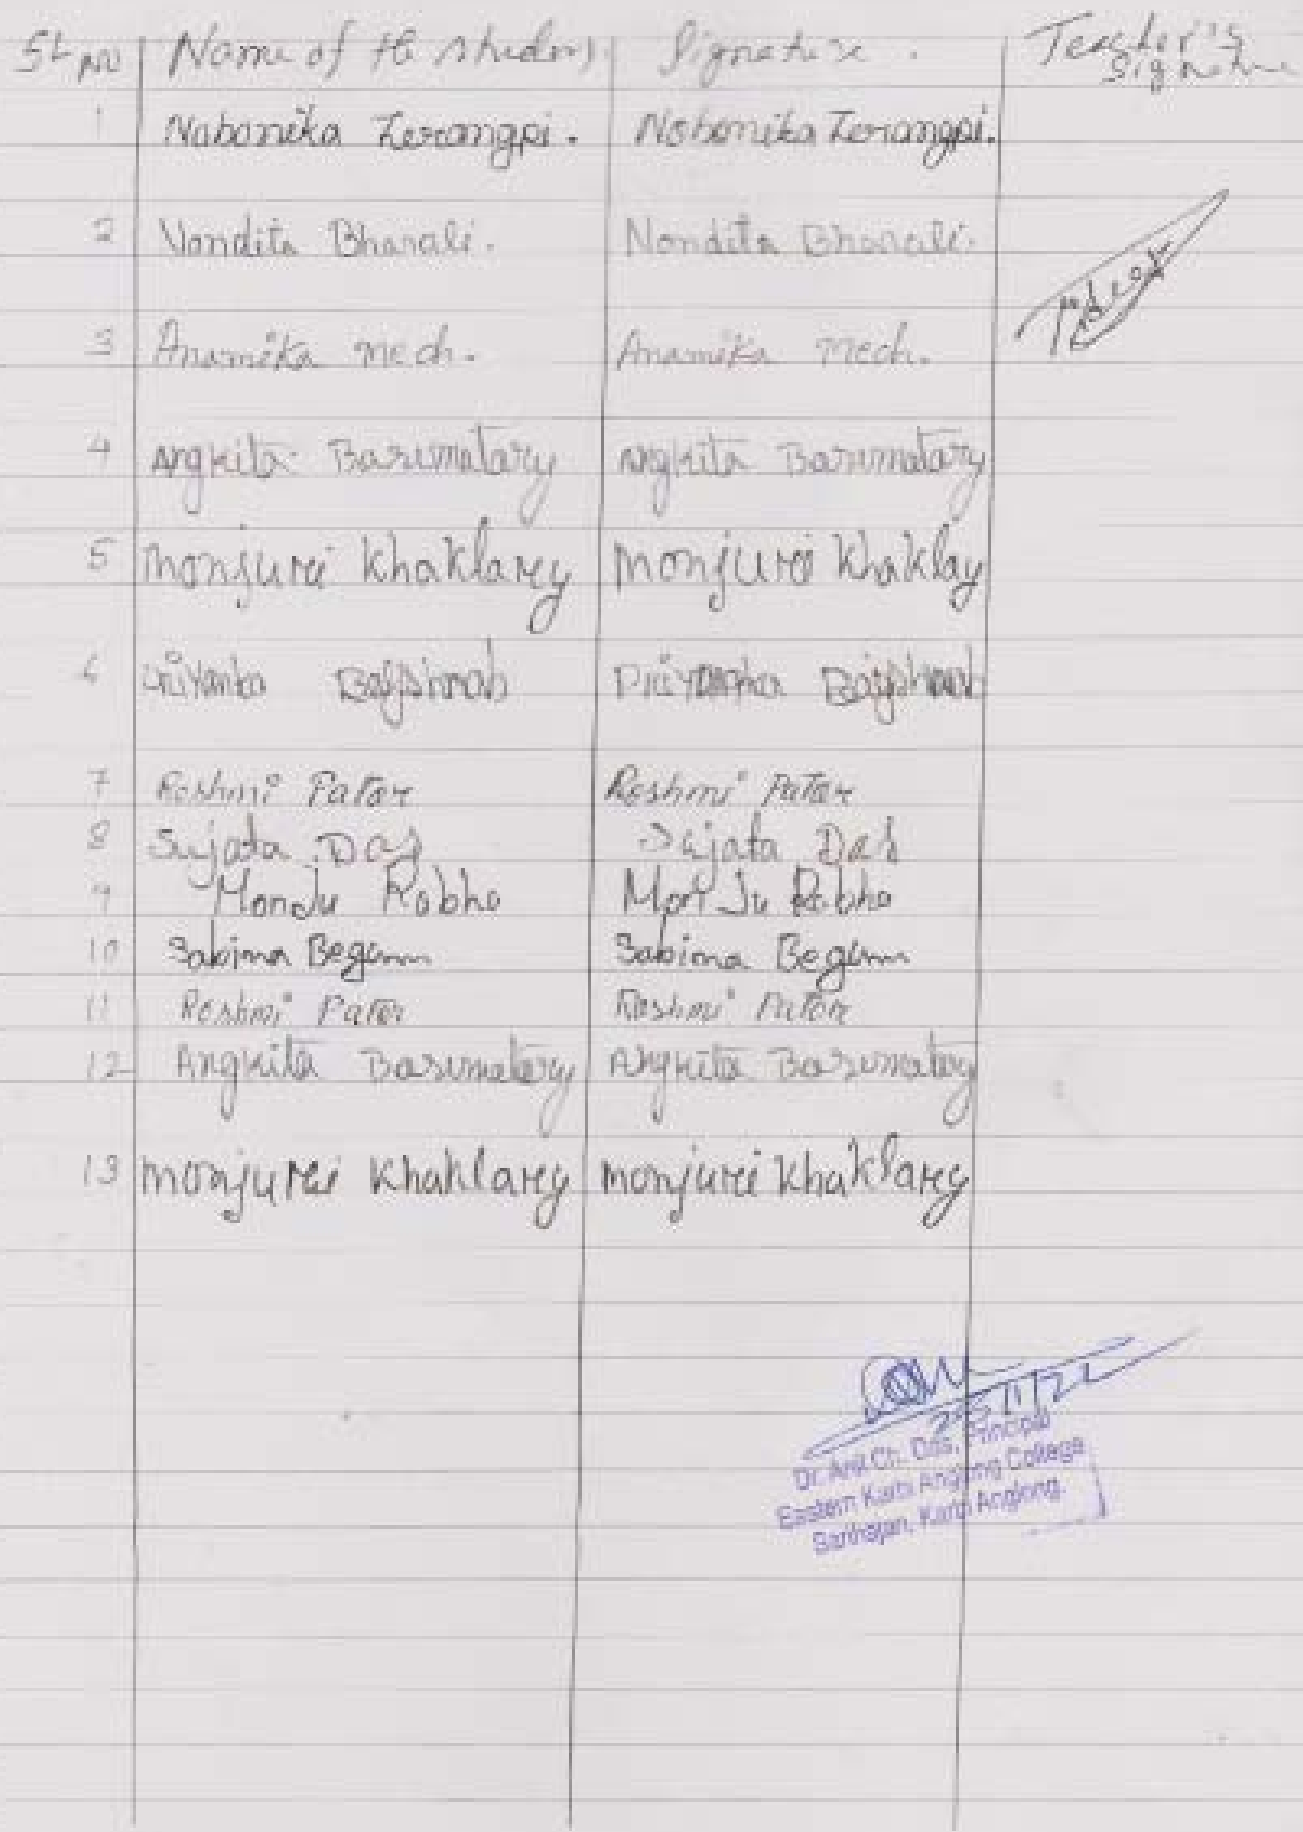 SL no Name of the students Signature. Teacher's
Signature
1 Nabonika Terangpi. Nobonika Terangpi.
2 Nandita Bharali. Nondita Bharali.
3 Anamika Mech. Anamika Mech.
4 Angkita Basumatary Angkita Basumatary
5 Monjuri Khaklary Monjuri Khaklay
6 Priyanka Bajshnab Priyanka Bajshnab
7 Reshmi Pator Reshmi Pator
8 Sujata Das Sujata Das
9 Monju Rabha Monju Rabha
10 Sabina Begum Sabina Begum
11 Reshmi Pator Reshmi Pator
12 Angkita Basumatary Angkita Basumatary
13 Monjuri Khaklary Monjuri Khaklary
Dr. Ch. Das, Principal
Eastern Karbi Anglong College
Sarihajan, Karbi Anglong.